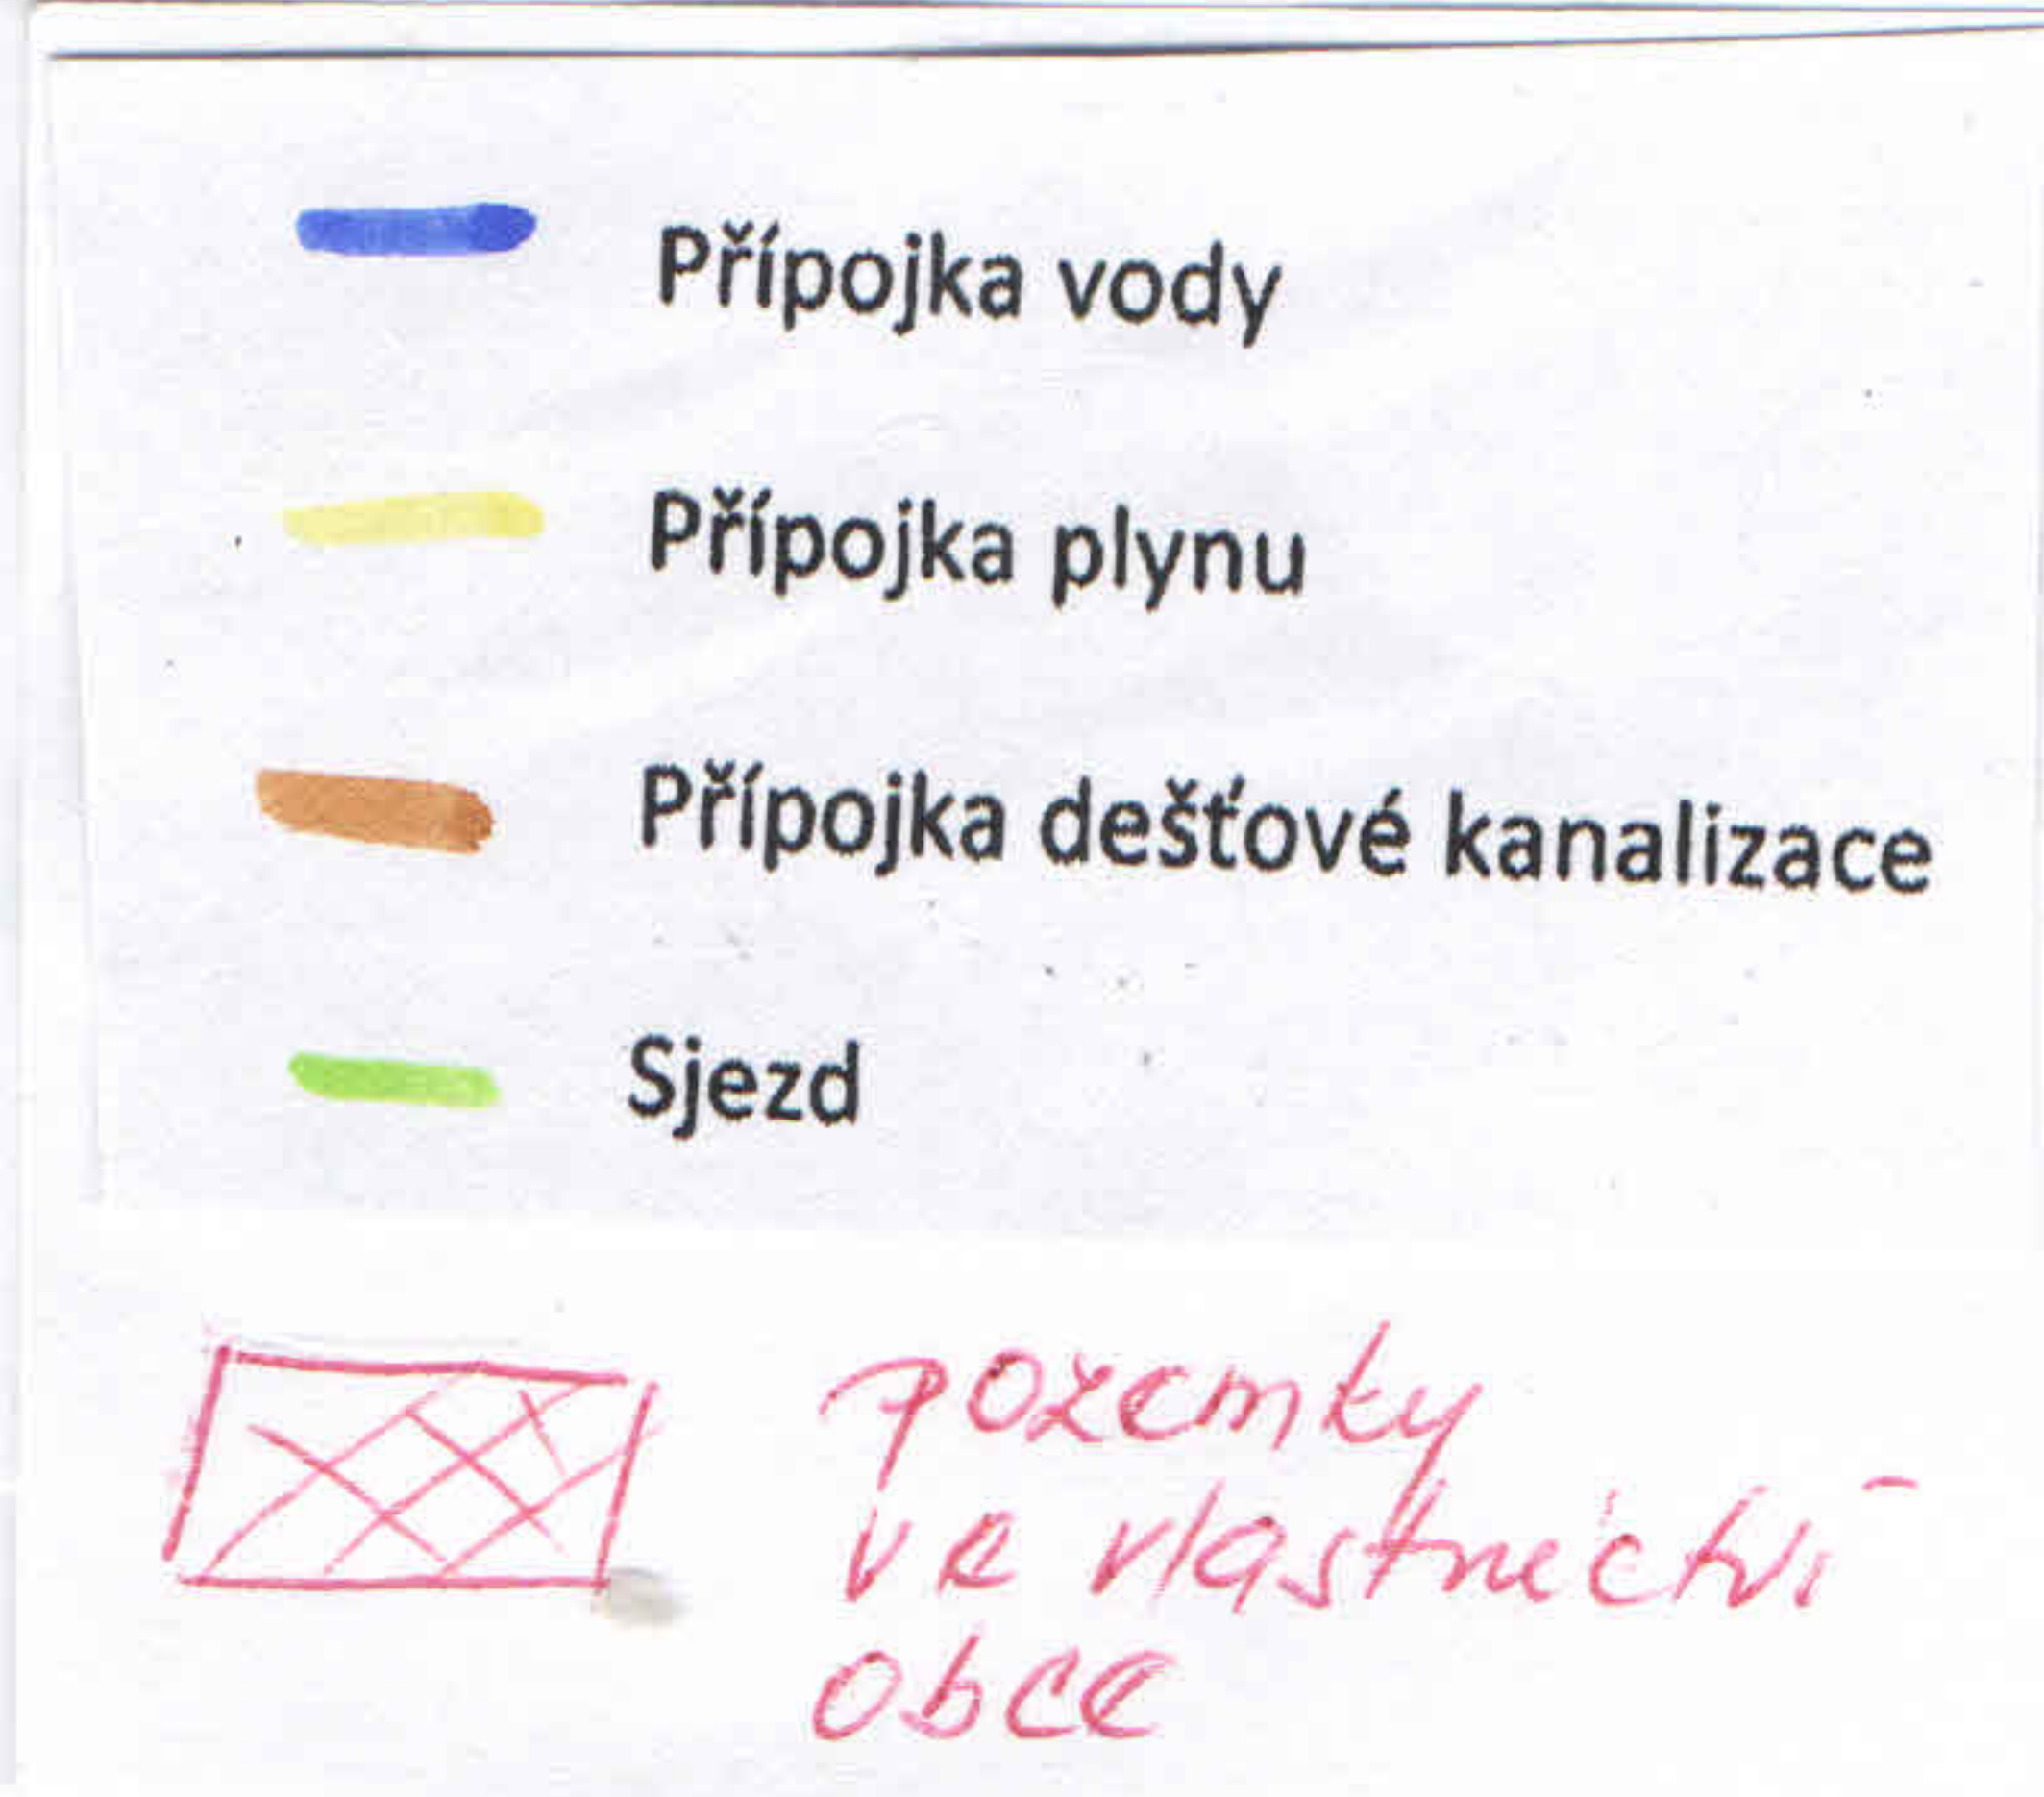 Přípojka vody
Přípojka plynu
Přípojka dešťové kanalizace
Sjezd
pozemky
ve vlastnictví
obce